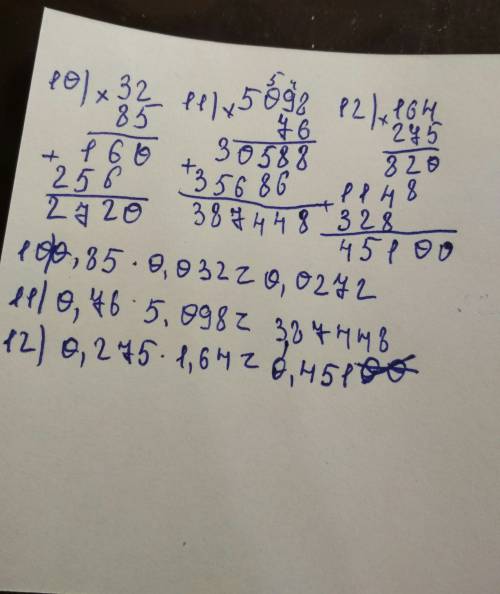 10) × 32
85
+ 160
256
2720
11) × 5098
5 4
76
+ 30588
35686
387448
12) × 164
275
820
+ 1148
328
45100
10) 0,85 · 0,032 = 0,0272
11) 0,76 · 5,098 = 3,87448
12) 0,275 · 1,64 = 0,45100